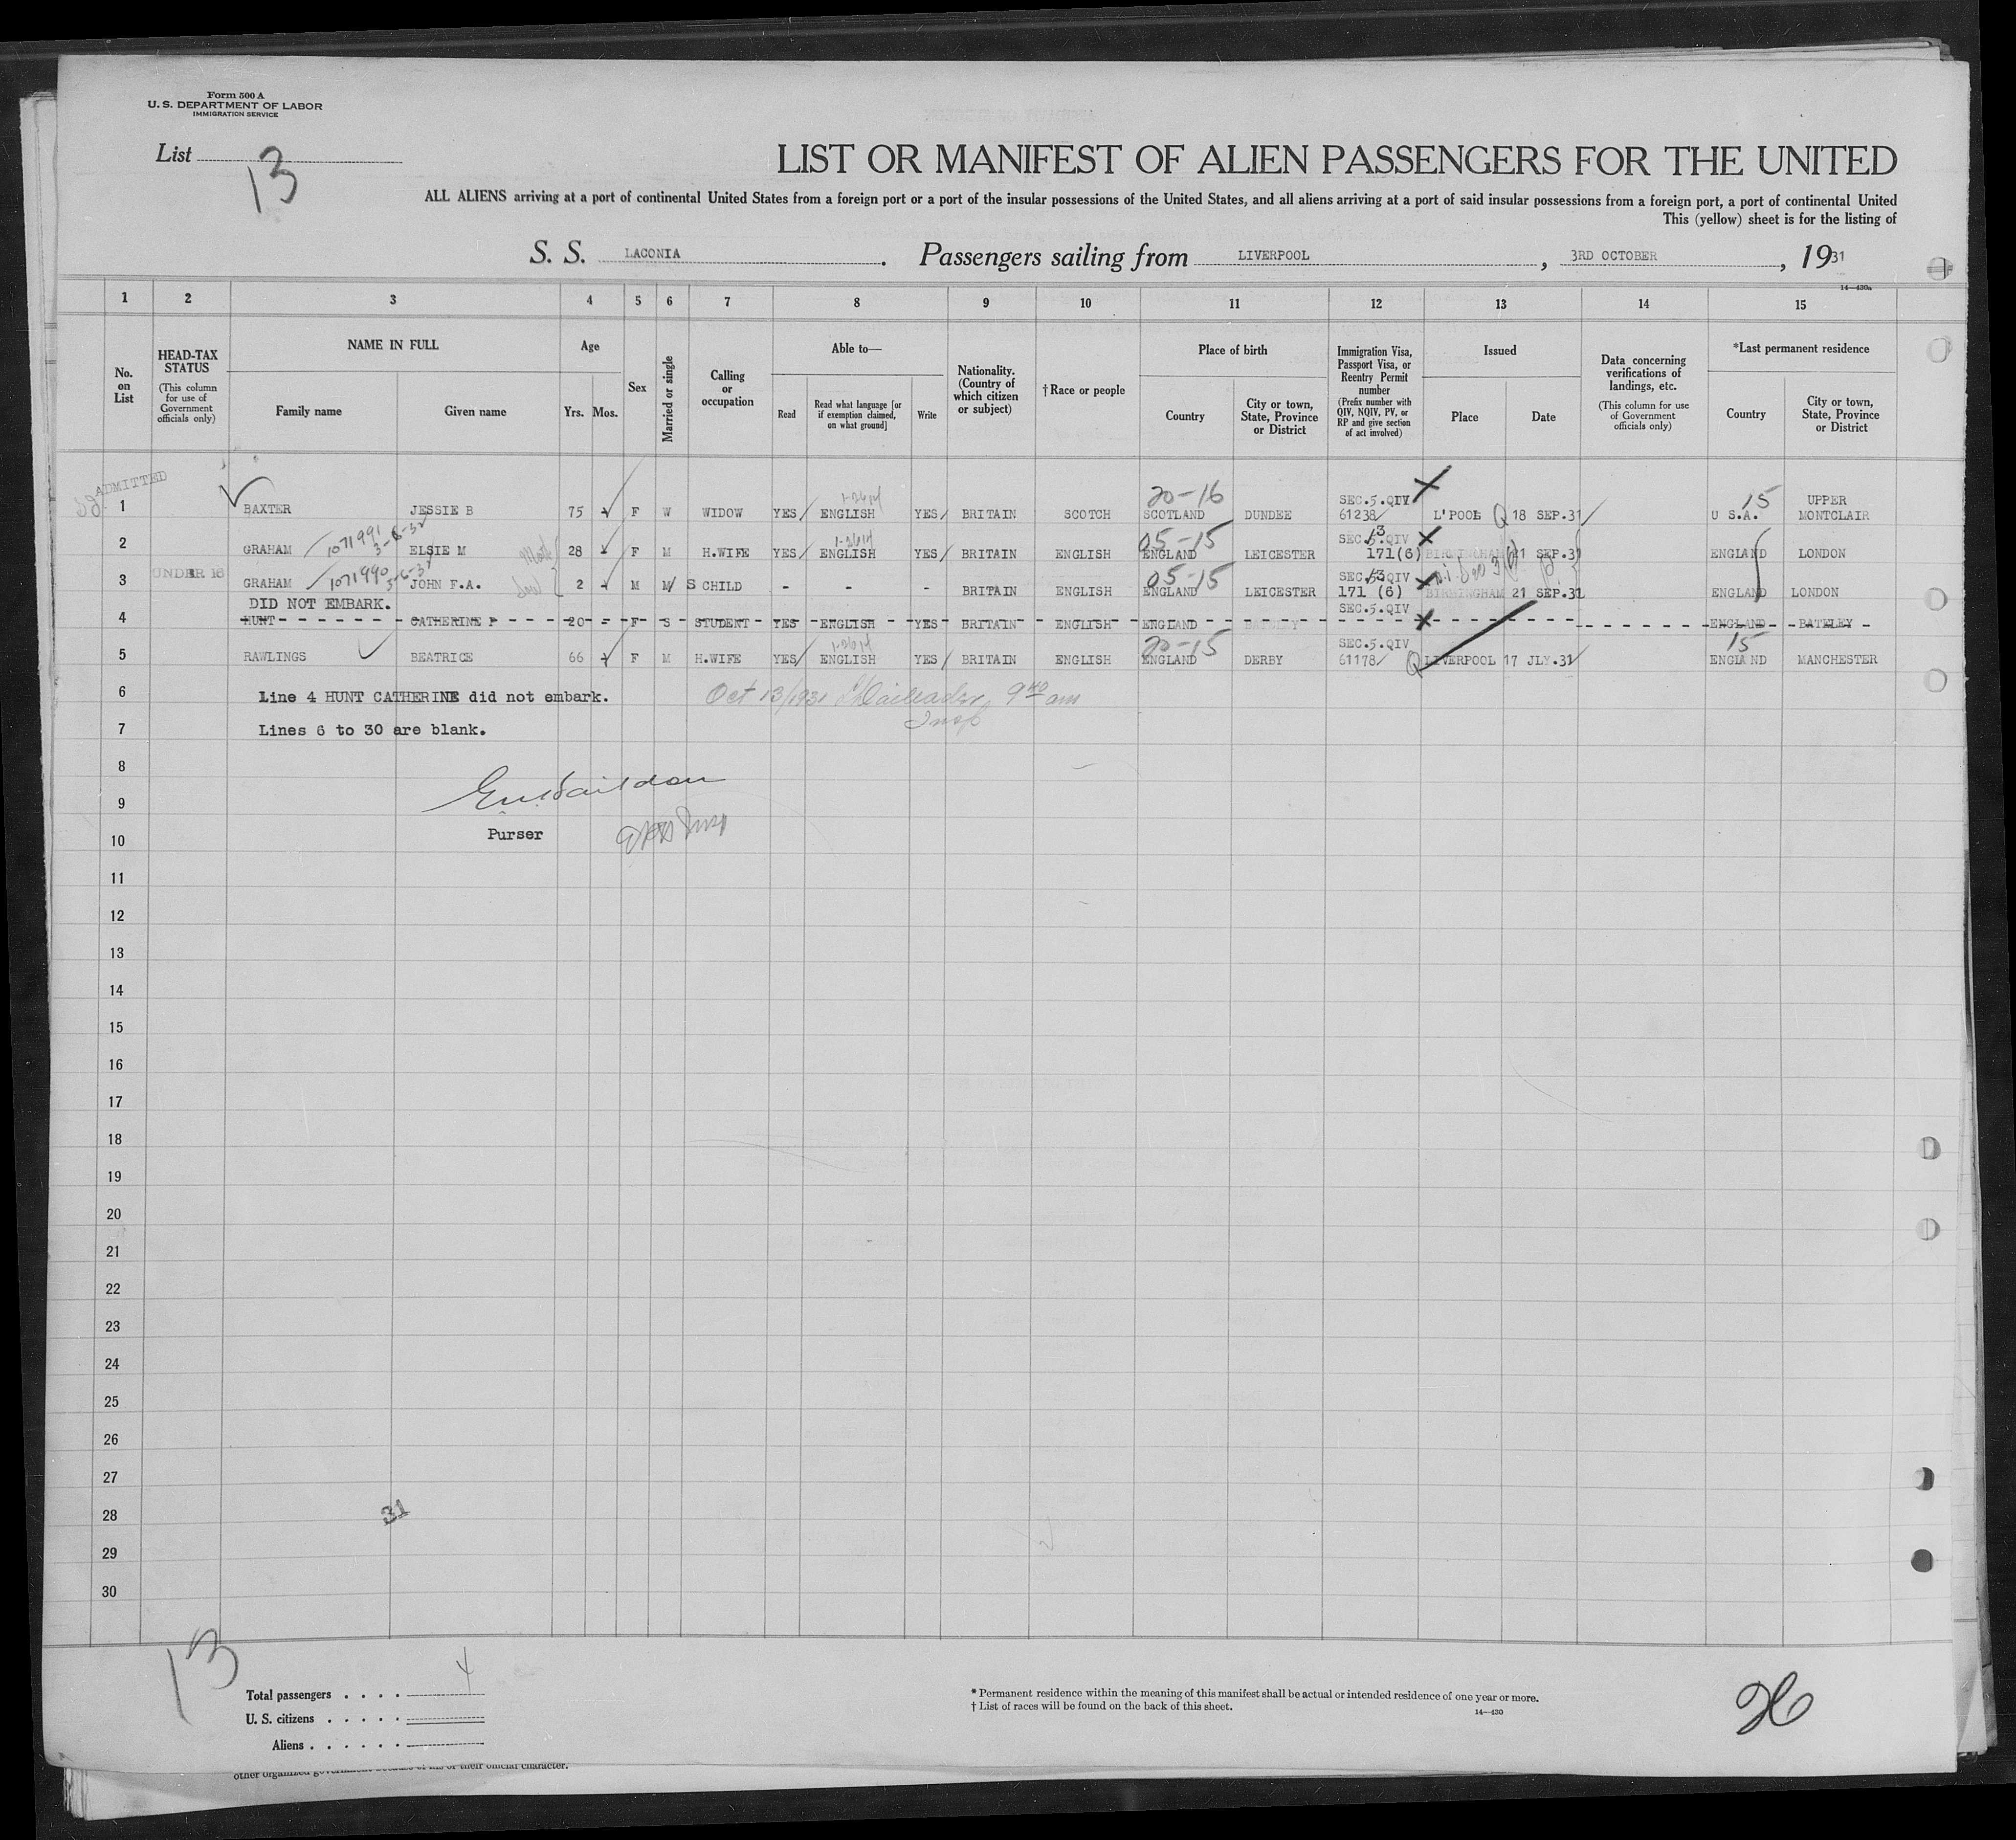 Form 500 A
U. S. DEPARTMENT OF LABOR
IMMIGRATION SERVICE
List 13
LIST OR MANIFEST OF ALIEN PASSENGERS FOR THE UNITED
ALL ALIENS arriving at a port of continental United States from a foreign port or a port of the insular possessions of the United States, and all aliens arriving at a port of said insular possessions from a foreign port, a port of continental United
This (yellow) sheet is for the listing of
S. S. LACONIA. Passengers sailing from LIVERPOOL, 3RD OCTOBER, 1931
14—430a
1 2 3 4 5 6 7 8 9 10 11 12 13 14 15
No. on List
HEAD-TAX STATUS (This column for use of Government officials only)
NAME IN FULL
Family name Given name
Age
Yrs. Mos.
Sex
Married or single
Calling or occupation
Able to—
Read
Read what language [or if exemption claimed, on what ground]
Write
Nationality. (Country of which citizen or subject)
†Race or people
Place of birth
Country
City or town, State, Province or District
Immigration Visa, Passport Visa, or Reentry Permit number (Prefix number with QIV, NQIV, PV, or RP and give section of act involved)
Issued
Place Date
Data concerning verifications of landings, etc. (This column for use of Government officials only)
*Last permanent residence
Country
City or town, State, Province or District
ADMITTED
20-16 SEC.5.QIV 15 UPPER
1 BAXTER JESSIE B 75 F W WIDOW YES ENGLISH YES BRITAIN SCOTCH SCOTLAND DUNDEE 61238 L'POOL Q 18 SEP.31 U S.A. MONTCLAIR
1071991 3-6-3 05-15 SEC.3.QIV
2 GRAHAM ELSIE M 28 F M H.WIFE YES ENGLISH YES BRITAIN ENGLISH ENGLAND LEICESTER 171(6) BIRMINGHAM 21 SEP.31 ENGLAND LONDON
UNDER 16 1071990 3-6-3 05-15 SEC.3.QIV
3 GRAHAM JOHN F.A. 2 M M S CHILD - - - BRITAIN ENGLISH ENGLAND LEICESTER 171 (6) BIRMINGHAM 21 SEP.31 ENGLAND LONDON
DID NOT EMBARK. SEC.5.QIV
4 HUNT CATHERINE P 20 - F S STUDENT YES ENGLISH YES BRITAIN ENGLISH ENGLAND BATELEY ENGLAND BATELEY
20-15 SEC.5.QIV 15
5 RAWLINGS BEATRICE 66 F M H.WIFE YES ENGLISH YES BRITAIN ENGLISH ENGLAND DERBY 61178 Q LIVERPOOL 17 JLY.31 ENGLAND MANCHESTER
6 Line 4 HUNT CATHERINE did not embark. Oct 13/1931 9 40 am
Insp
7 Lines 6 to 30 are blank.
8
9
Purser
10
11
12
13
14
15
16
17
18
19
20
21
22
23
24
25
26
27
28 31
29
30
13
Total passengers . . . . 4
U. S. citizens . . . . .
Aliens . . . . . .
* Permanent residence within the meaning of this manifest shall be actual or intended residence of one year or more.
† List of races will be found on the back of this sheet.
14—430
other organized government or their official character.